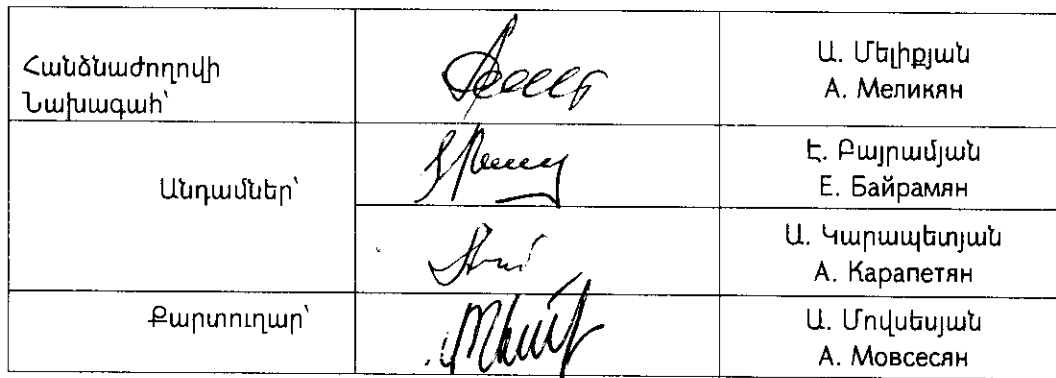 Հանձնաժողովի
Նախագահ՝
Ա. Մելիքյան
А. Меликян
Անդամներ՝
Է. Բայրամյան
Е. Байрамян
Ա. Կարապետյան
А. Карапетян
Քարտուղար՝
Ա. Մովսեսյան
А. Мовсесян